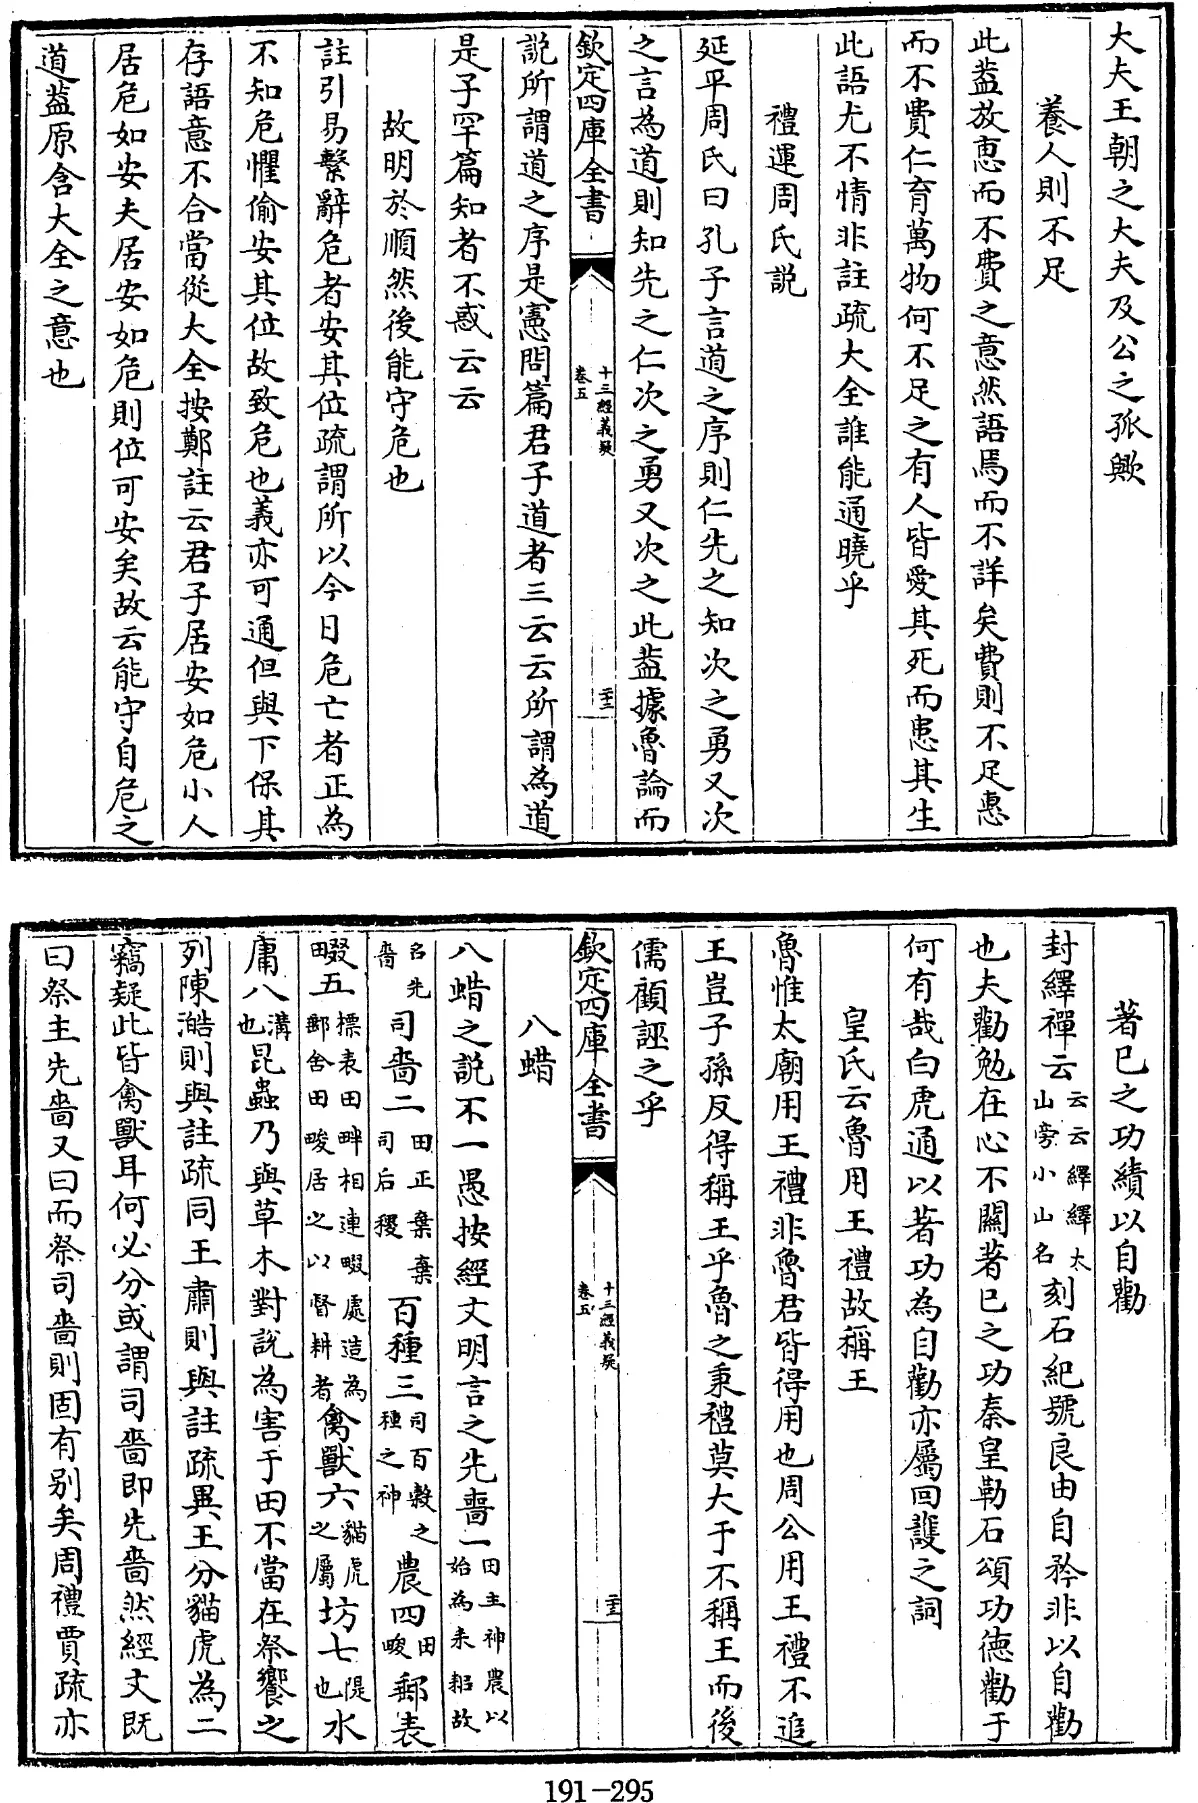 大夫王朝之大夫及公之孤歟
養人則不足
此葢放恵而不費之意然語焉而不詳矣費則不足惠
而不費仁育萬物何不足之有人皆愛其死而患其生
此語尤不情非註疏大全誰能通曉乎
禮運周氏説
延平周氏曰孔子言道之序則仁先之知次之勇又次
之言為道則知先之仁次之勇又次之此葢據魯論而
欽定四庫全書
十三經義疑
卷五
二十二
説所謂道之序是憲問篇君子道者三云云所謂為道
是子罕篇知者不惑云云
故明於順然後能守危也
註引易繫辭危者安其位疏謂所以今日危亡者正為
不知危懼偷安其位故致危也義亦可通但與下保其
存語意不合當從大全按鄭註云君子居安如危小人
居危如安夫居安如危則位可安矣故云能守自危之
道葢原含大全之意也
著已之功績以自勸
封繹禪云云云繹繹太山旁小山名刻石紀號良由自矜非以自勸
也夫勸勉在心不關著已之功秦皇勒石頌功德勸于
何有哉白虎通以著功為自勸亦屬回護之詞
皇氏云魯用王禮故稱王
魯惟太廟用王禮非魯君皆得用也周公用王禮不追
王豈子孫反得稱王乎魯之秉禮莫大于不稱王而後
儒顧誣之乎
欽定四庫全書
十三經義疑
卷五
二十三
八蜡
八蜡之説不一愚按經文明言之先嗇一田主神農以始為耒耜故
名先嗇司嗇二田正棄棄司后稷百種三司百穀之種之神農四田畯郵表
畷五標表田畔相連畷處造為田郵舍田畯居之以督耕者禽獸六貓虎之屬坊七隄也水
庸八溝也昆蟲乃與草木對説為害于田不當在祭饗之
列陳澔則與註疏同王肅則與註疏異王分貓虎為二
竊疑此皆禽獸耳何必分或謂司嗇即先嗇然經文既
曰祭主先嗇又曰而祭司嗇則固有别矣周禮賈疏亦
191-295